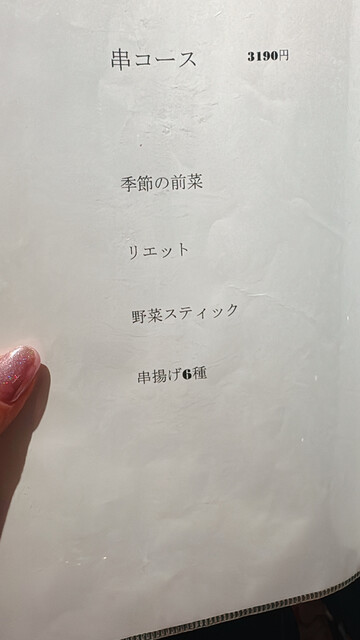 串コース 3190円
季節の前菜
リエット
野菜スティック
串揚げ6種